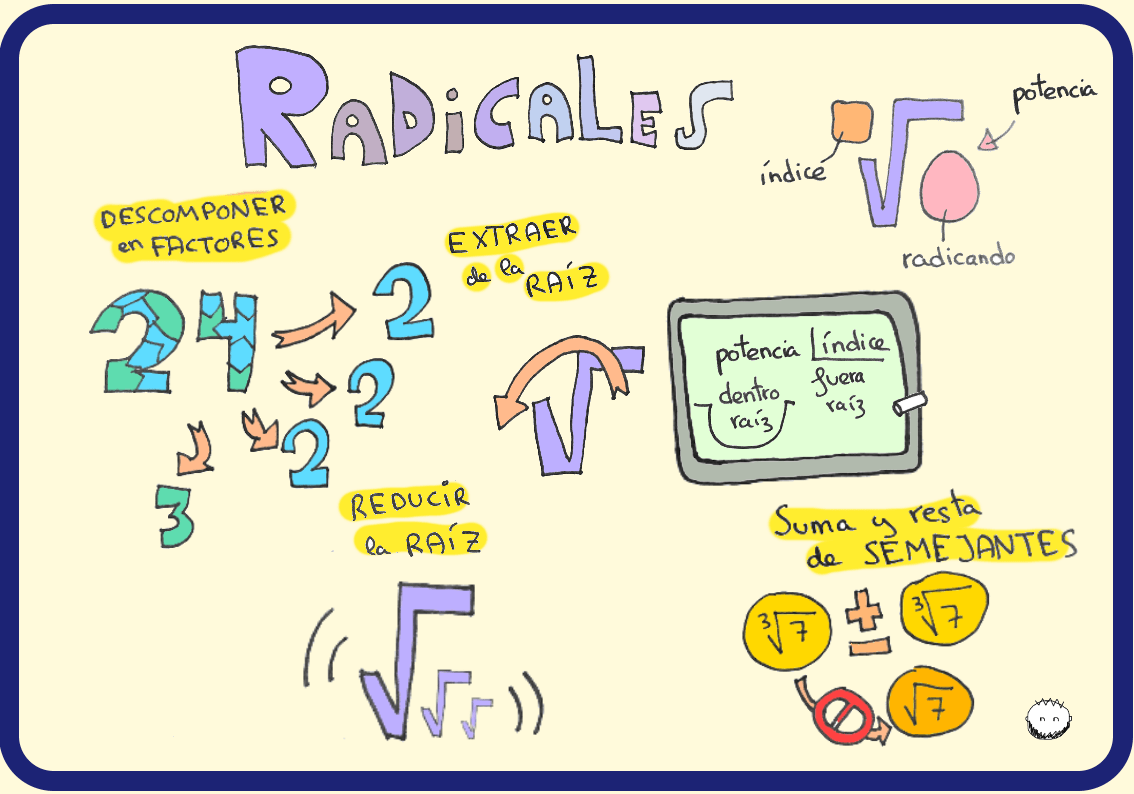 RADiCALES
potencia
índice
radicando
DESCOMPONER
en FACTORES
24
2
2
2
3
EXTRAER
de la
RAÍZ
√
potencia índice
dentro
raíz
fuera
raíz
REDUCIR
la RAÍZ
√√√
Suma y resta
de SEMEJANTES
∛7 ± ∛7
√7